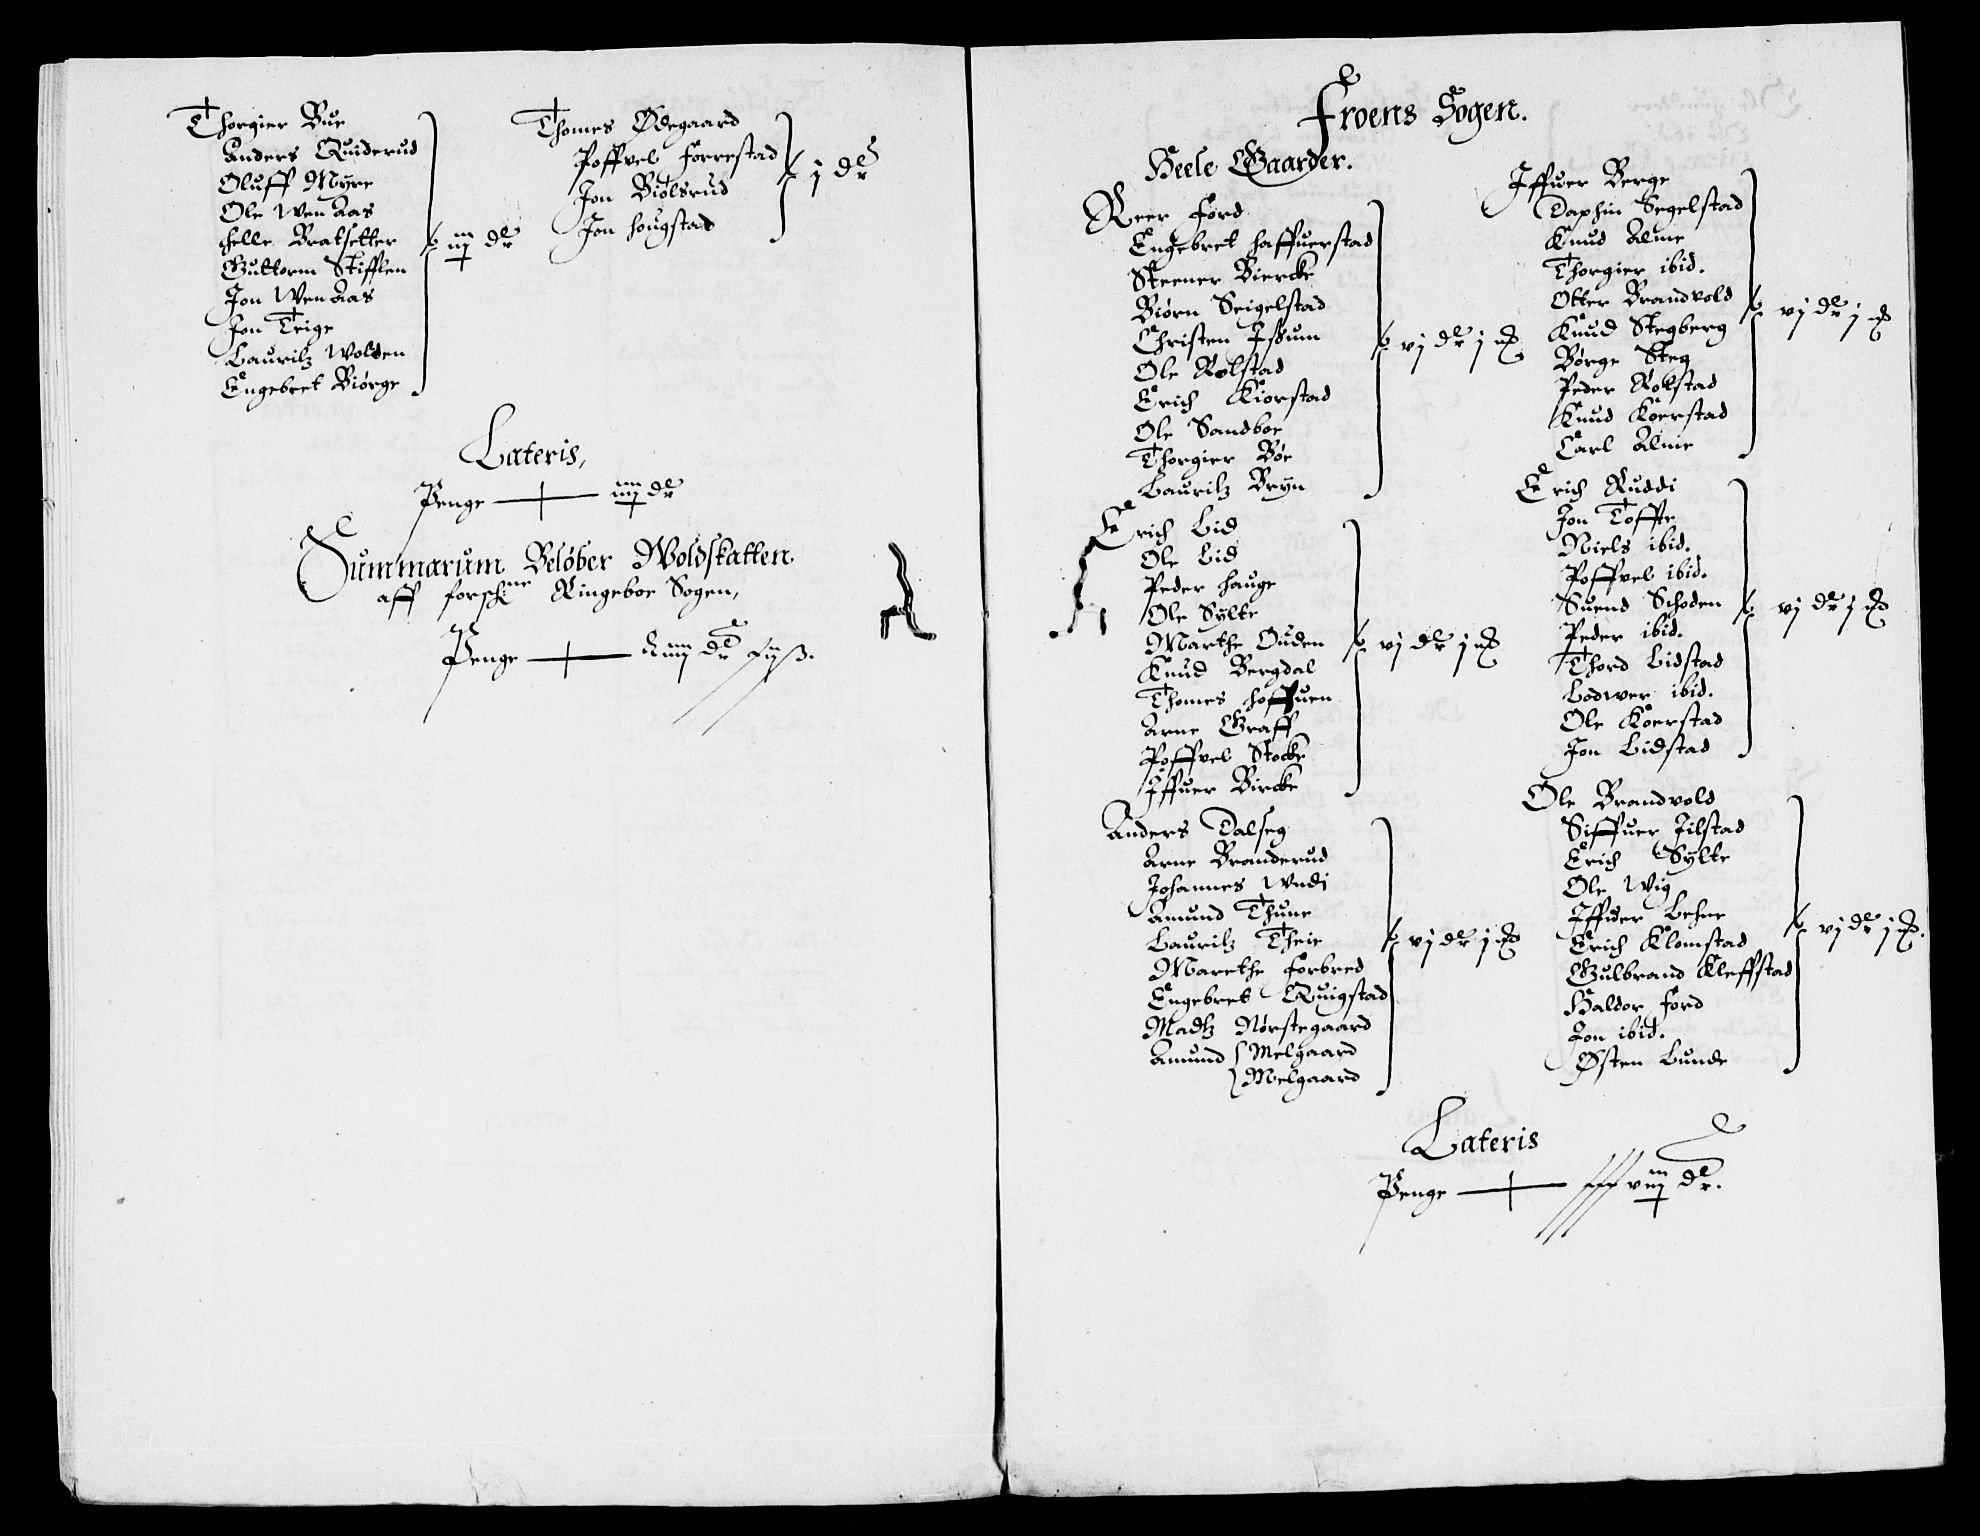 Thorgier Bue
Anders Quiderud
Oluff Myre
Ole Wenaas
Bratsetter
Guttorm Stifflen
Jon Wenaas
Jon Teige
Lauritz Wolden
Engebret Biørge
dr
Thomes Ødegaard
Poffvel Forrestad
Jon Biølsrud
Jon Hougstad
j dr
Lateris,
Penge dr
Summarum Beløber Woldskatten
aff forschne Ringeboe Sogen,
Penge dr
Froens Sogen.
Heele Gaarder.
Reer Ford
Engebret Haffuerstad
Steener Biercke
Biørn Seigelstad
Christen Issum
Ole Rolstad
Erich Kiorstad
Ole Sandboe
Thorgier Bøe
Lauritz Bryn
vj dr j
Erich Lid
Ole Lid
Peder Hauge
Ole Sylte
Marthe Ouden
Knud Bergdal
Thomes Hoffuen
Arne Graff
Poffvel Stocke
Iffuer Bircke
vj dr j
Anders Dalseg
Arne Branderud
Johannes Wndj
Amund Thune
Lauritz Theie
Marethe Forbred
Engebret Quigstad
Madtz Nørstegaard
Amund Melgaard
Melgaard
vj dr j
Iffuer Berge
Daphin Segelstad
Knud Alme
Thorgier ibid.
Otter Brandvold
Knud Stegberg
Børge Steg
Peder Rolstad
Knud Koerstad
Carl Alme
vj dr j
Erich Ruddi
Jon Toffte
Niels ibid.
Poffvel ibid.
Suend Schoden
Peder ibid.
Thord Lidstad
Lodwer ibid.
Ole Koerstad
Jon Lidstad
vj dr j
Ole Brandvold
Siffuer Jilstad
Erich Sylte
Ole Wig
Iffuer Lehne
Erich Klomstad
Gulbrand Kleffstad
Haldor Ford
Jon ibid.
Østen Lunde
vj dr j
Lateris
Penge dr.